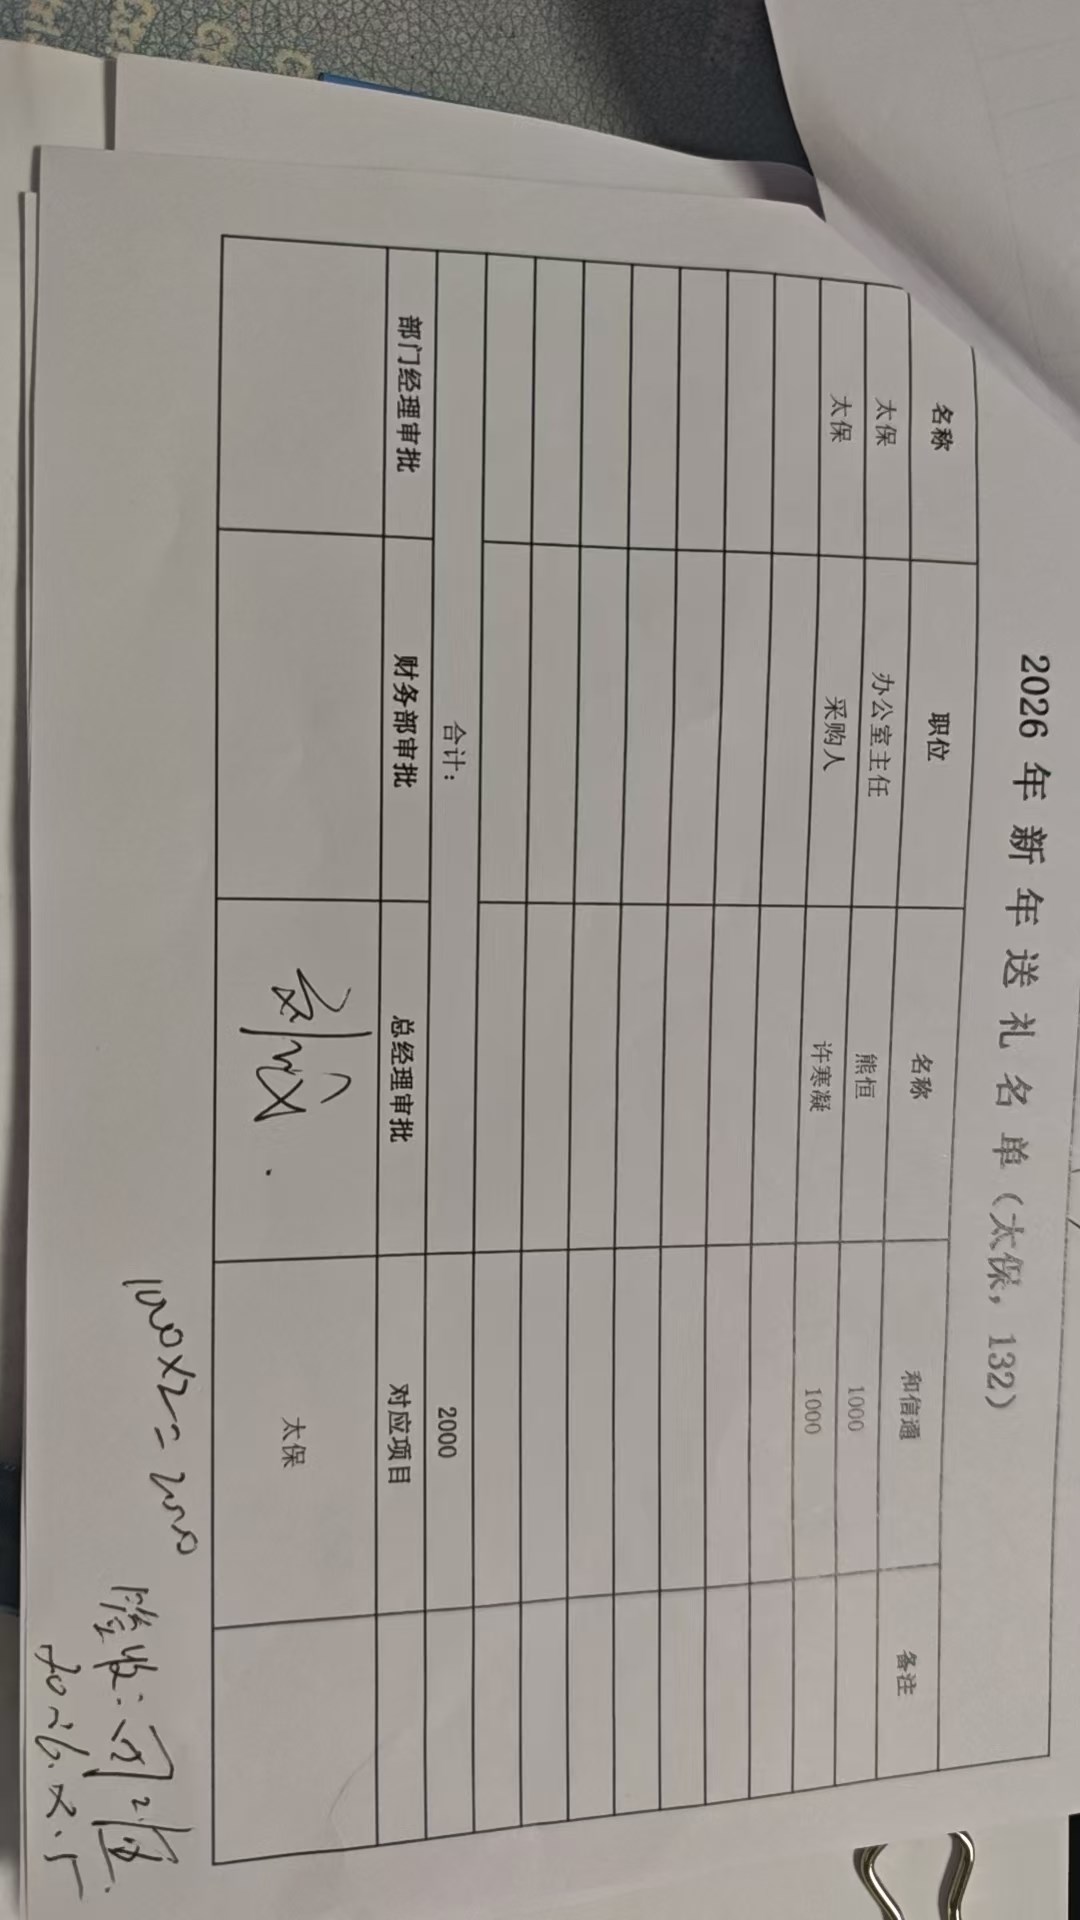 2026年新年送礼名单（太保，132）
名称 职位 名称 和信通 备注
太保 办公室主任 熊恒 1000
太保 采购人 许寒凝 1000
合计： 2000
部门经理审批 财务部审批 总经理审批 对应项目
太保
1000×2=2000
验收：